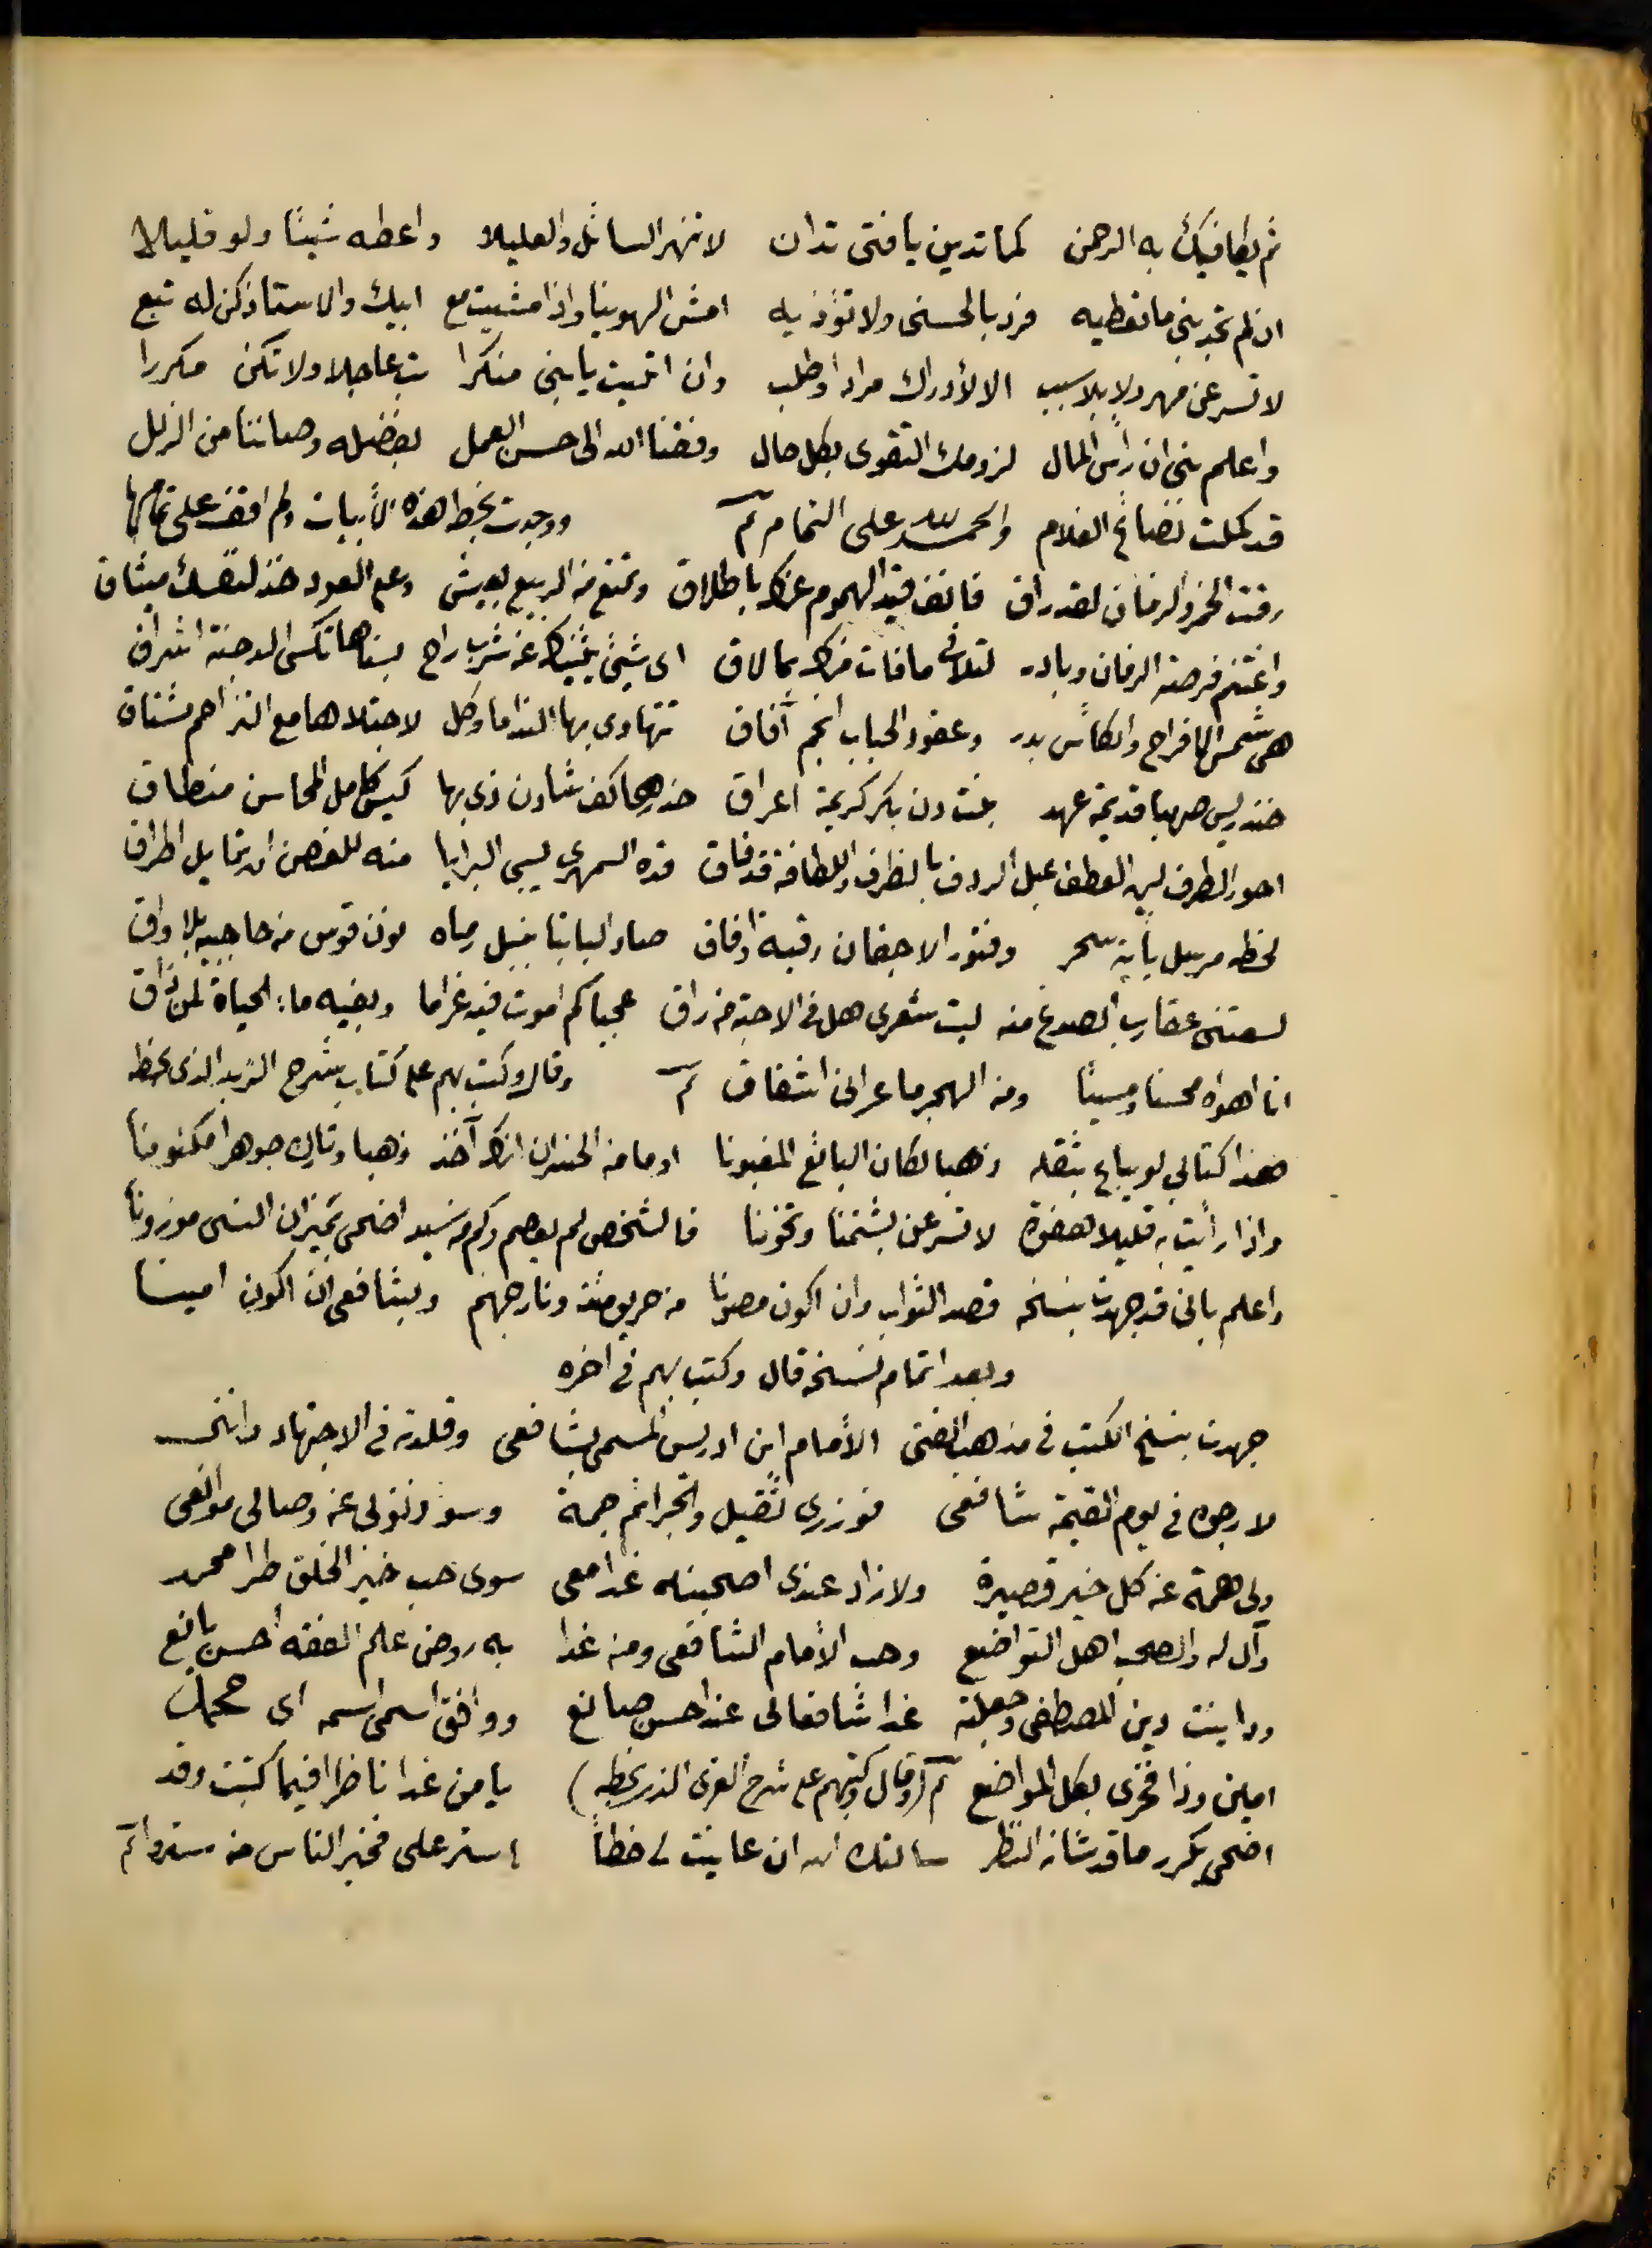 ثم يكافيك به الرحمن كما تدين يا فتى تدان لا تنهر السائل والعليلا واعطه شيئا ولو قليلا
ان لم تجد بني ما تعطيه فرد بالحسنى ولا تؤذيه امش الهوينا واذا مشيت مع ابيك والاستاذ كن له تبع
لا تسرعن مهرولا بلا سبب الا لأدراك مراد أو طلب وان اتيت يا بني منكرا تب عاجلا ولا تكن مكررا
واعلم بني ان رأس المال لزومك التقوى بكل حال وفقنا الله الى حسن العمل بفضله وصاننا من الزلل
قد كملت نصائح الغلام والحمد لله على التمام تم ووجدت بخطه هذه الأبيات ولم اقف على تمامها
رقت الخمر والزمان لقد راق فانف قيد الهموم عنك باطلاق وتمتع من الربيع بعيش ومع العود خذ لنفسك ميثاق
واغتنم فرصة الزمان وبادر لتلافي ما فات منك بما لاق اي شيئ يثنيك عن شرب راح بسناها تكسى الدجنة اشراق
هي شمس الافراح والكأس بدر وعقود الحباب انجم آفاق تتهاوى بها الندا ما وكل لاجتلاها مع التزاحم مشتاق
خندريس صهبا قديمة عهد بنت دن بكر كريمة اعراق خذ كف شادن ذي بها كيس كامل المحاسن منطاق
احور الطرف لين العطف عبل الردف بالظرف واللطافة قد فاق قده السمهري يسبي البرايا منه للغصن ان تمايل اطراق
لحظه مرسل بأية سحر وفتور الاجفان رقية صاد البابنا بنبل رماه نون قوس من حاجبيه بلا واق
لسعتني عقارب الصدغ منه ليت شعري هل في الاحبة من راق عجبا كم اموت فيه غراما وبفيه ماء الحياة لمن ذاق
انا اهواه محسنا ومسيئا ومن الهجر ما عراني اشفاق تم وقال وكتب بهم على كتاب شرح الزبد الذي بخطه
هذا كتابي لو يباع بثقله ذهبا لكان البائع المغبونا اوما من الخسران انك آخذ ذهبا وتارك جوهرا مكنونا
واذا رأيت به قليلا هفوة لا تسرعن بشتمنا وتخوننا فالشخص لم يعصم وكم من سيد اضحى بميزان النسى موزونا
واعلم باني قد جهدت بنسخه قصد الثواب وان اكون مصونا من حر ونار جهنم وبشافعي ان اكون امينا
وبعد اتمام نسخه قال وكتب بهم في اخره
جهدت بنسخ الكتب في مذهب الفتى الأمام ابن ادريس المسمى بشافعي وقلدته في الاجتهاد وانني
لارجوه في يوم القيمة شافعي فوزري ثقيل والجرائم جمة وسوء نولى عن وصالي موانعي
ولي همة عن كل خير قصيرة ولا زاد عندي اصحبنه غدا معي سوى حب خير الخلق طرا محمد
وآل له والصحب اهل التواضع وحب الأمام الشافعي ومن غدا به روض علم الفقه أحسن يانع
وداينت دين المصطفى وجعلته غدا شافعا لى عند احسن صانع ووافق اسمي اسمه اي محمد
امين وذا فخري بكل المواضع تم (وقال وكتبهم على شرح الغزي الذي بخطه) يا من غدا ناظرا فيما كتبت وقد
اضحى يكرر ما قد شانه النظر سالتك الله ان عاينت لي خطأ استر على فخير الناس من ستروا تم